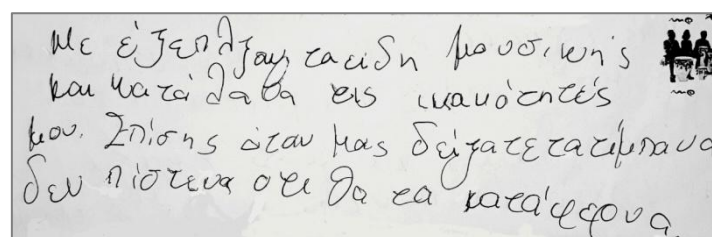 Με έξεπληξαν τα είδη μουσικής
και κατάλαβα τις ικανότητές
μου. Επίσης όταν μας δείξατε τα τύμπανα
δεν πίστευα οτι θα τα κατάφερνα.